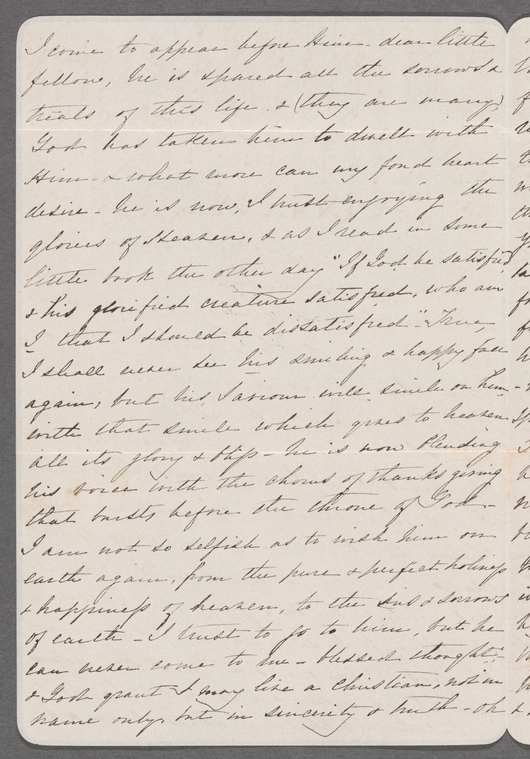 I come to appear before Him - dear little
fellow, he is spared all the sorrows &
trials of this life & (they are many)
God has taken him to dwell with
Him - & what more can my fond heart
desire - he is now, I trust enjoying the
glories of Heaven, & as I read in some
little book the other day "If God be satisfied
& his glorified creature satisfied, who am
I that I should be dissatisfied" - True,
I shall never see his smiling & happy face
again, but his Saviour will smile on him -
with that smile which gives to heaven
all its glory & bliss - he is now blending
his voice with the chorus of thanksgiving
that bursts before the throne of God -
I am not so selfish as to wish him on
earth again, from the pure & perfect holiness
& happiness of heaven, to the sins & sorrows
of earth - I trust to go to him, but he
can never come to me - blessed thought!
& God grant I may live a Christian, not in
name only, but in sincerity & truth - oh